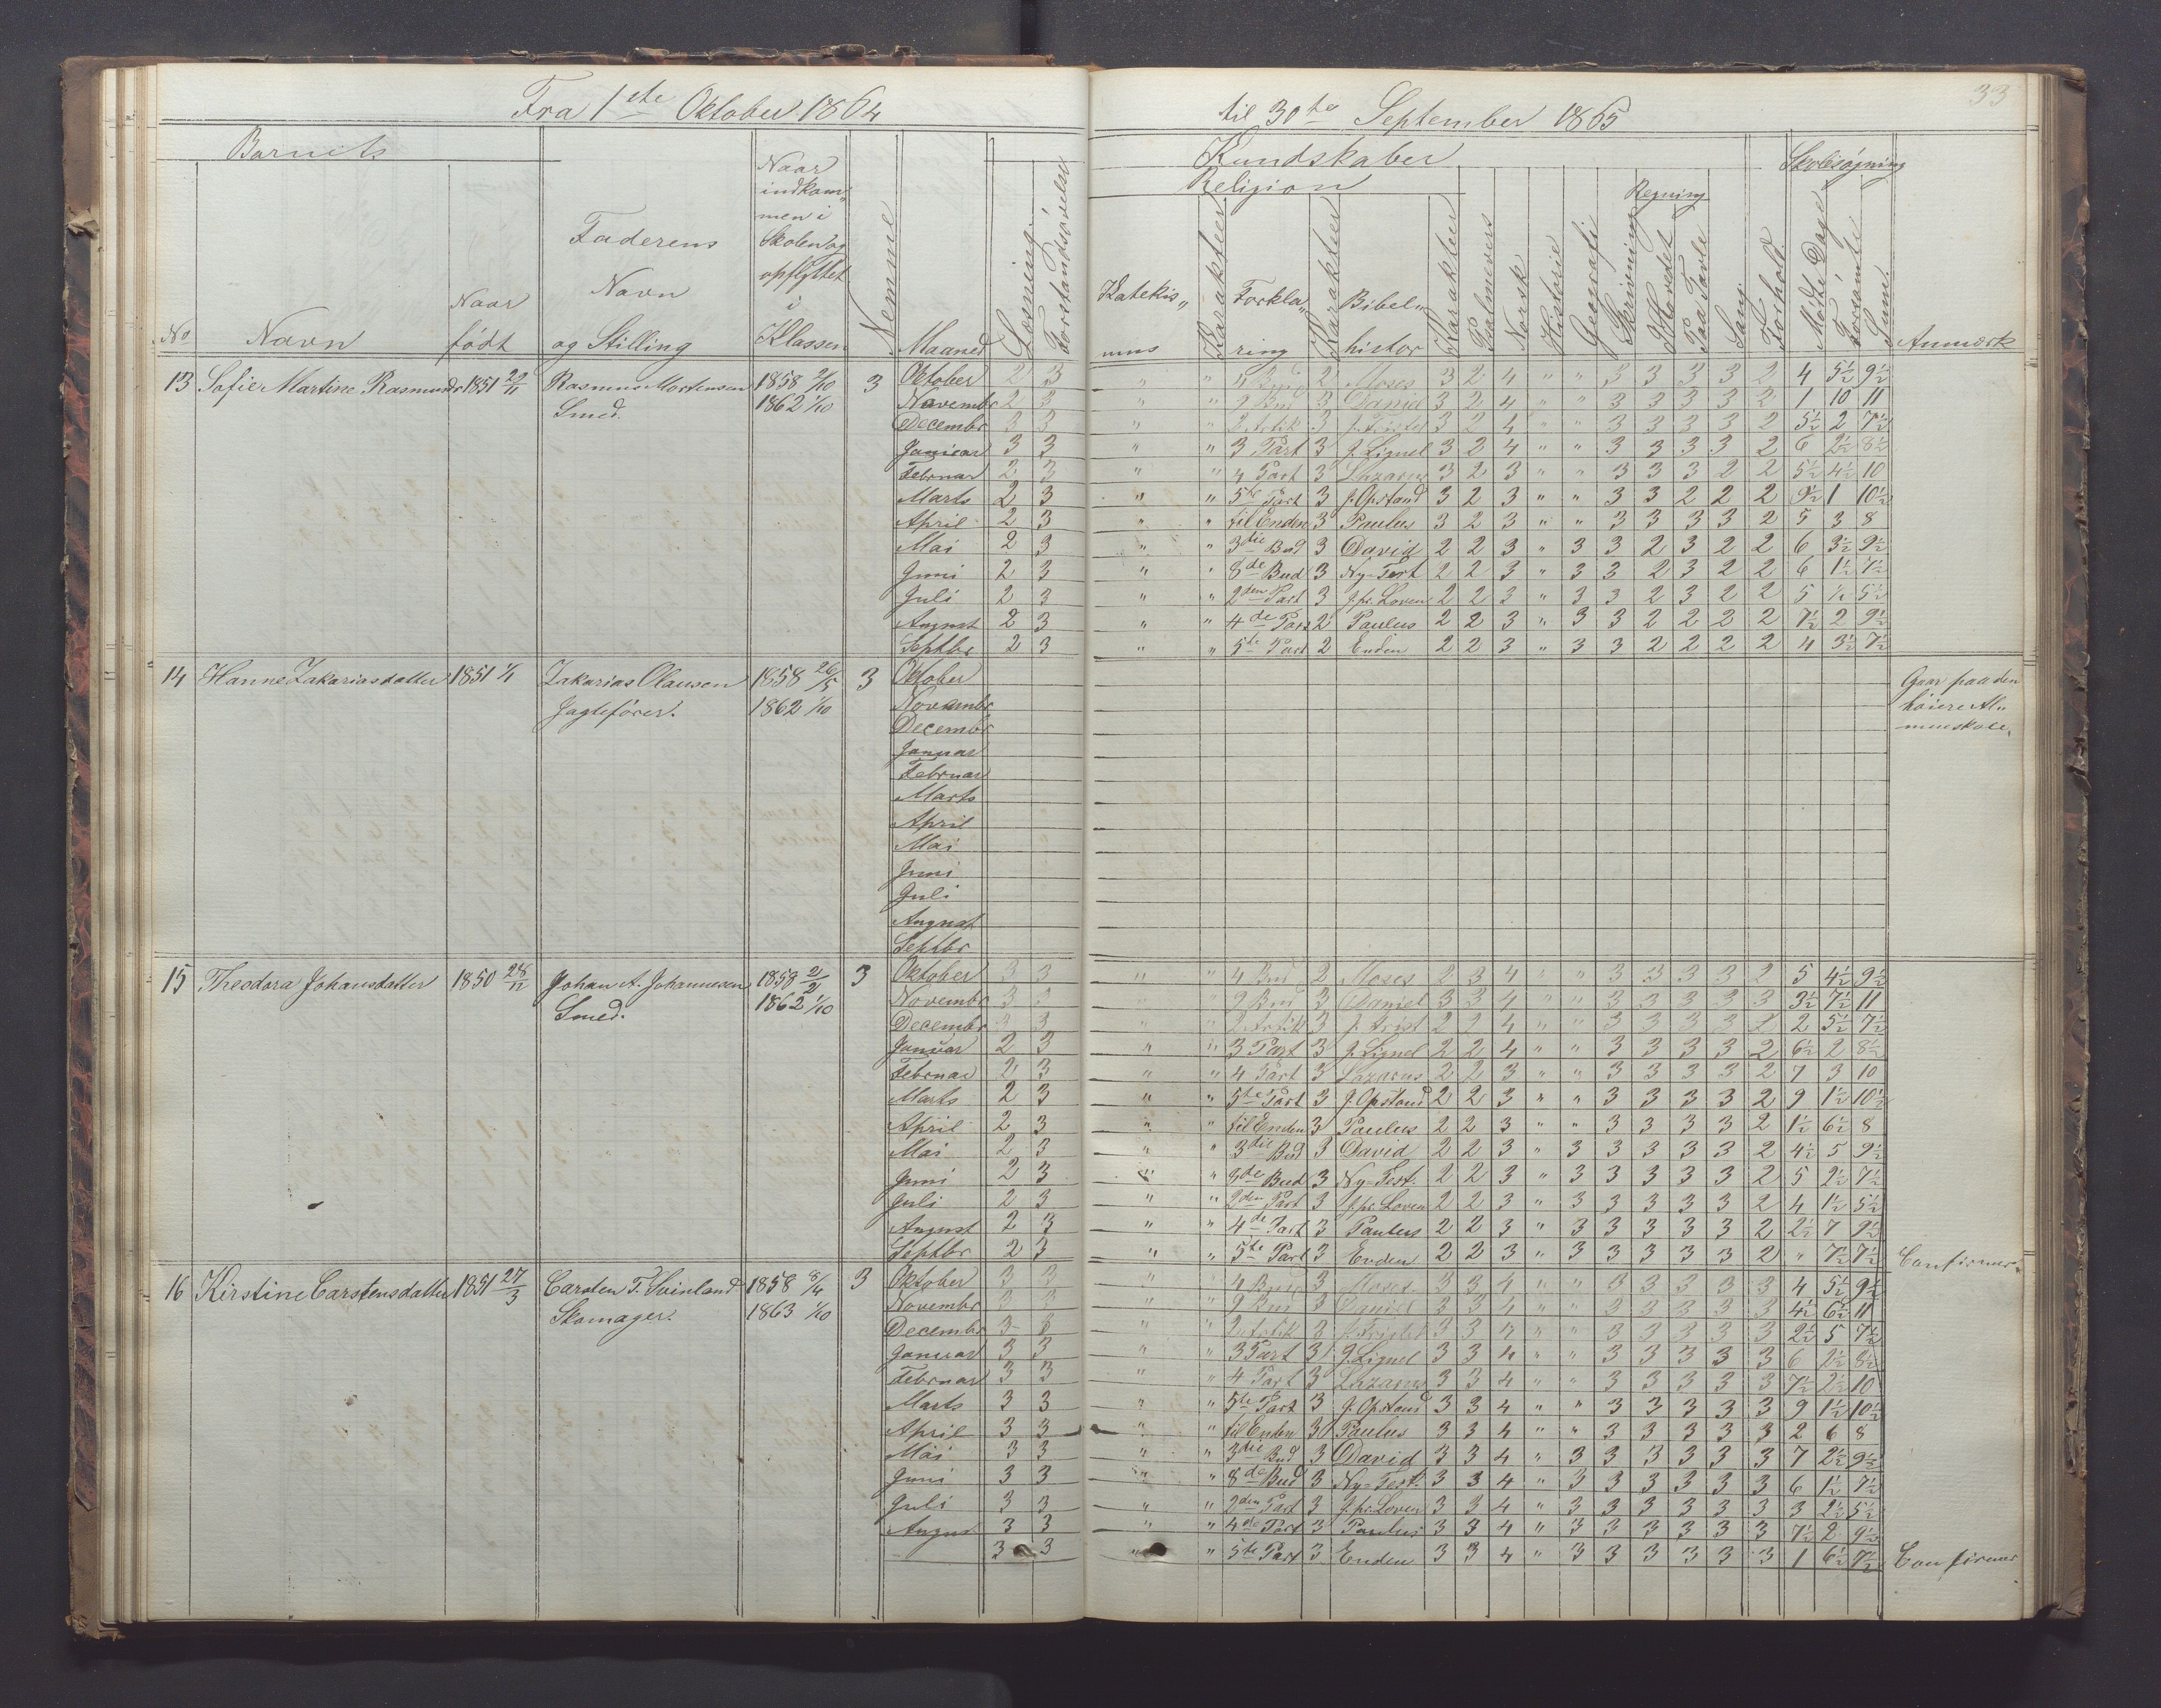 33
Fra 1ste Oktober 1864 til 30te September 1865
Barnets
Kundskaber
Skolesøgning
Religion
Regning
No
Navn
Naar født
Faderens Navn og Stilling
Naar indkommen i Skolen og opflyttet i Klassen
Nemme
Maaned
Læsning
Forstandsøvelse
Katekis„ mus
Karakteer
Forkla„ ring
Karakteer
Bibel„ histor
Karakteer
Psalmevers
Norsk
Historie
Geografi
Skrivning
I Hovedet
Paa Tavle
Sang
Forhold
Mødte Dage
Forsømte
Summ
Anmærk
13 Sofie Martine Rasmusdr 1851 Rasmus Mortensen 1858 2/10 3
Smed. 1862 1/10
Oktober 2 3 " " 4 Bud 2 Moses 3 2 4 " " 3 3 3 3 2 4 5½ 9½
Novembr 2 3 " " 9 Bud 3 Daniel 3 2 4 " " 3 3 3 3 2 1 10 11
Decembr 3 3 " " 2 Artik 3 3 2 4 " " 3 3 3 3 2 5½ 2 7½
Januar 3 3 " " 3 Part 3 J. Lignel 3 2 4 " " 3 3 3 3 2 6 2½ 8½
Februar 2 3 " " 4 Part 3 Lazarus 3 2 3 " " 3 3 3 2 2 5½ 4½ 10
Marts 2 3 " " 5te Part 3 J. Opstand 3 2 3 " " 3 3 2 2 2 9½ 1 10½
April 2 3 " " til Enden 3 Paulus 3 2 3 " " 3 3 3 3 2 5 3 8
Mai 2 3 " " 3die Bud 3 David 2 2 3 " 3 3 2 3 2 2 6 3½ 9½
Juni 2 3 " " 8de Bud 3 Ny-Test 2 2 3 " 3 3 2 3 2 2 6 1½ 7½
Juli 2 3 " " 2den Part 3 J. pr. Loven 2 2 3 " 3 3 2 3 2 2 5 ½ 5½
August 2 3 " " 4de Part 2 Paulus 2 2 3 " 3 3 2 2 2 2 7½ 2 9½
Septbr 2 3 " " 5te Part 2 Enden 2 2 3 " 3 3 2 2 2 2 4 3½ 7½
14 Hanne Zakariasdatter 1851 1/1 Zakarias Olausen 1858 26/5 3
Jagtefører. 1862 1/10
Gaar paa den
høiere Al„
mueskole.
Oktober
Novembr
Decembr
Januar
Februar
Marts
April
Mai
Juni
Juli
August
Septbr
15 Theodora Johansdatter 1850 Johan A. Johannesen 1858 2/2 3
Smed. 1862 1/10
Oktober 3 3 " " 4 Bud 2 Moses 2 3 4 " " 3 3 3 3 2 5 4½ 9½
Novembr 3 3 " " 9 Bud 3 Daniel 3 3 4 " " 3 3 3 3 3 3½ 7½ 11
Decembr 3 3 " " 2 Artik 3 2 2 4 " " 3 3 3 3 2 2 5½ 7½
Januar 2 3 " " 3 Part 3 J. Lignel 2 2 4 " " 3 3 3 3 2 6½ 2 8½
Februar 2 3 " " 4 Part 3 Lazarus 2 2 3 " " 3 3 3 3 2 7 3 10
Marts 2 3 " " 5te Part 3 J. Opstand 2 2 3 " " 3 3 3 3 2 9 1½ 10½
April 2 3 " " til Enden 3 Paulus 2 2 3 " " 3 3 3 3 2 1½ 6½ 8
Mai 2 3 " " 3die Bud 3 David 2 2 3 " 3 3 3 3 3 2 4½ 5 9½
Juni 2 3 " " 8de Bud 3 Ny-Test. 2 2 3 " 3 3 3 3 3 2 5 2½ 7½
Juli 2 3 " " 2den Part 3 J. pr. Loven 2 2 3 " 3 3 3 3 3 2 4 1½ 5½
August 2 3 " " 4de Part 3 Paulus 2 2 3 " 3 3 3 3 3 2 2½ 7 9½
Septbr 2 3 " " 5te Part 3 Enden 2 2 3 " 3 3 3 3 3 2 " 7½ 7½ Confirmer.
16 Kirstine Carstensdatter 1851 27/3 Carsten T. Svinland 1858 8/4 3
Skomager. 1863 1/10
Oktober 3 3 " " 4 Bud 3 Moses 3 3 4 " " 3 3 3 3 3 4 5½ 9½
Novembr 3 3 " " 9 Bud 3 Daniel 3 3 4 " " 3 3 3 3 3 4½ 6½ 11
Decembr 3 3 " " 2 Artik 3 3 3 4 " " 3 3 3 3 3 2½ 5 7½
Januar 3 3 " " 3 Part 3 J. Lignel 3 3 4 " " 3 3 3 3 3 6 2½ 8½
Februar 3 3 " " 4 Part 3 Lazarus 3 3 4 " " 3 3 3 3 3 7½ 2½ 10
Marts 3 3 " " 5te Part 3 J. Opstand 3 3 4 " " 3 3 3 3 3 9 1½ 10½
April 3 3 " " til Enden 3 Paulus 3 3 4 " " 3 3 3 3 3 2 6 8
Mai 3 3 " " 3die Bud 3 David 3 3 4 " 3 3 3 3 3 3 7 2½ 9½
Juni 3 3 " " 8de Bud 3 Ny-Test. 3 3 4 " 3 3 3 3 3 3 6 1½ 7½
Juli 3 3 " " 2den Part 3 J. pr. Loven 3 3 4 " 3 3 3 3 3 3 3 2½ 5½
August 3 3 " " 4de Part 3 Paulus 3 3 4 " 3 3 3 3 3 3 7½ 2 9½
3 3 " " 5te Part 3 Enden 3 3 4 " 3 3 3 3 3 3 1 6½ 7½ Confirmer